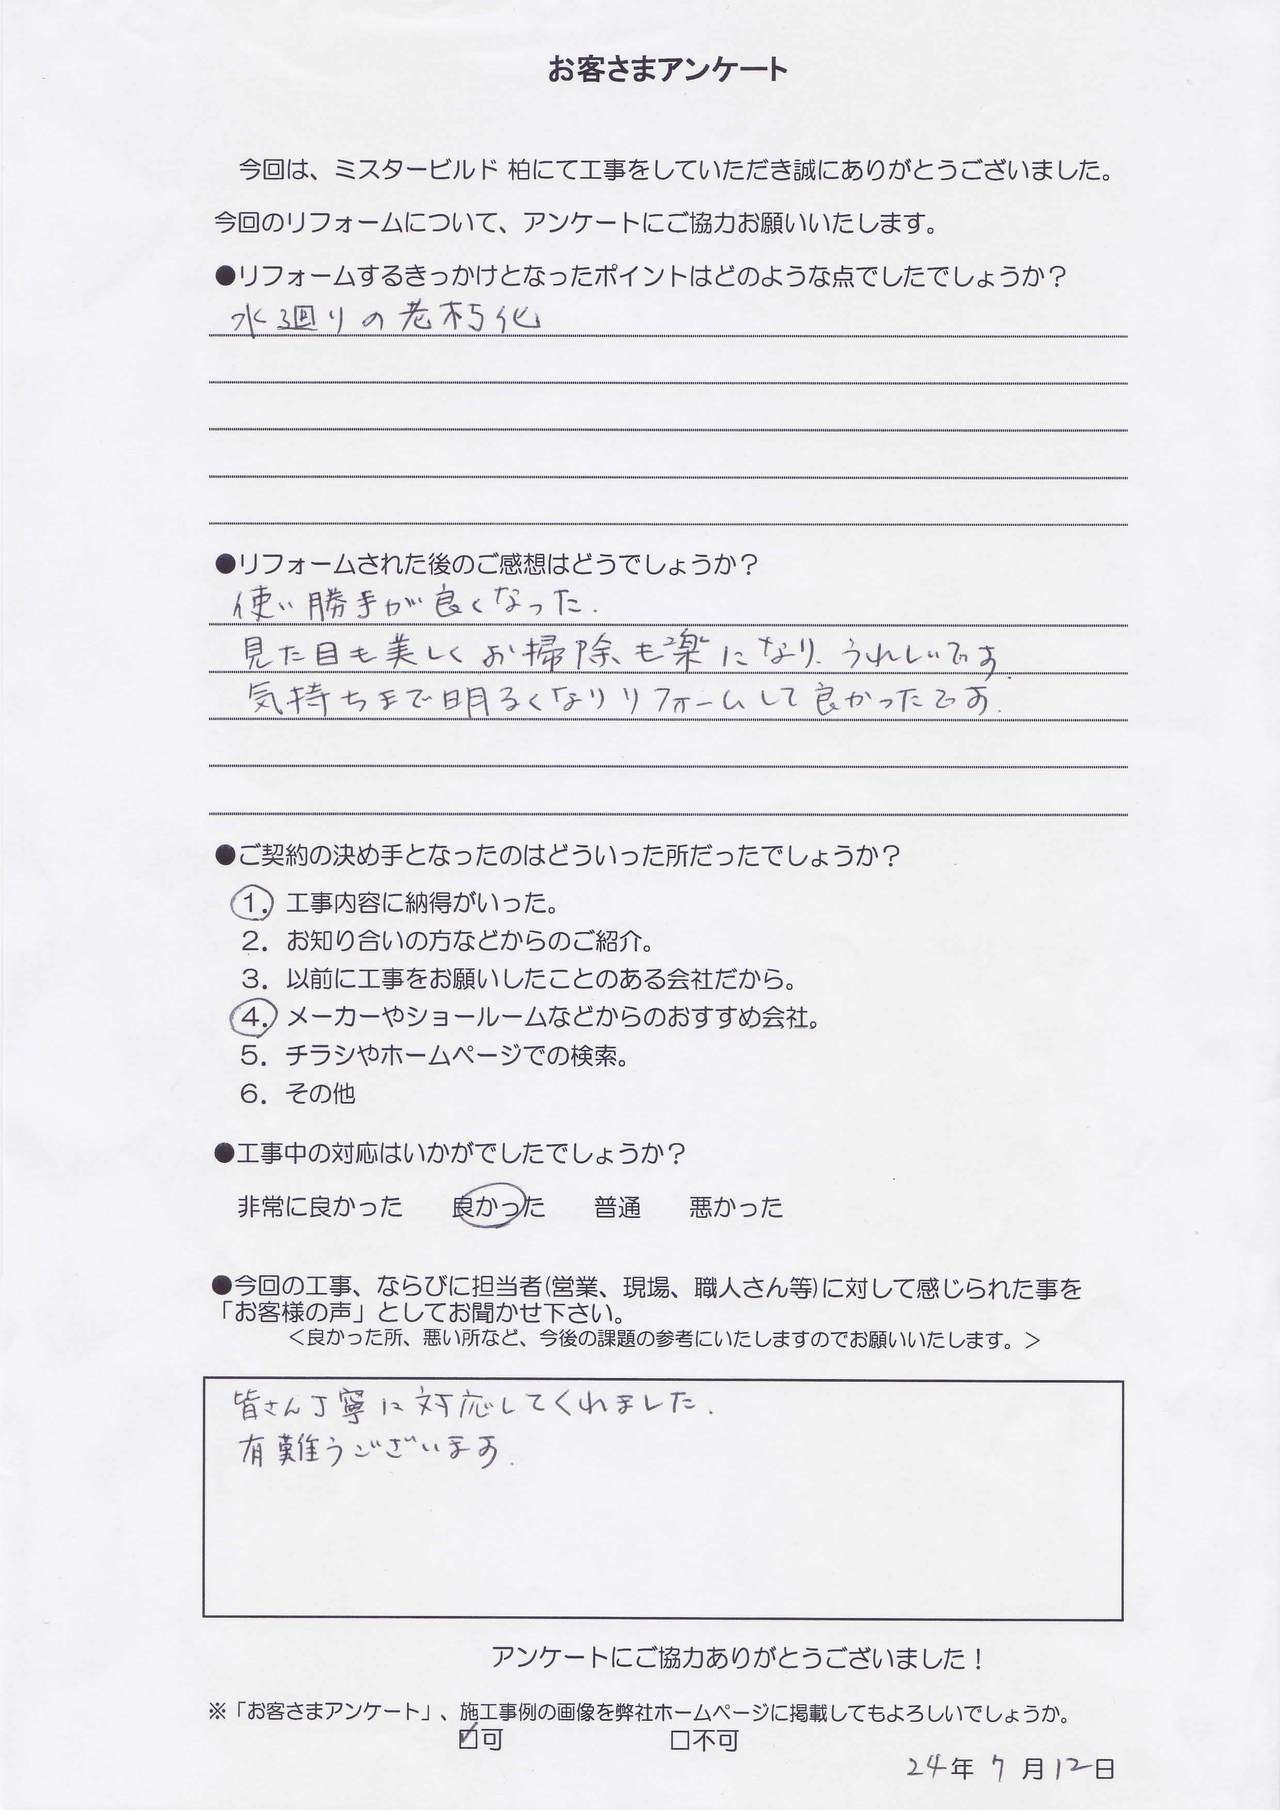 お客さまアンケート
今回は、ミスタービルド 柏にて工事をしていただき誠にありがとうございました。
今回のリフォームについて、アンケートにご協力お願いいたします。
●リフォームするきっかけとなったポイントはどのような点でしたでしょうか？
水廻りの老朽化
●リフォームされた後のご感想はどうでしょうか？
使い勝手が良くなった.
見た目も美しくお掃除も楽になり、うれしいです.
気持ちまで明るくなりリフォームして良かったです.
●ご契約の決め手となったのはどういった所だったでしょうか？
1. 工事内容に納得がいった。
2. お知り合いの方などからのご紹介。
3. 以前に工事をお願いしたことのある会社だから。
4. メーカーやショールームなどからのおすすめ会社。
5. チラシやホームページでの検索。
6. その他
●工事中の対応はいかがでしたでしょうか？
非常に良かった 良かった 普通 悪かった
●今回の工事、ならびに担当者(営業、現場、職人さん等)に対して感じられた事を
「お客様の声」としてお聞かせ下さい。
＜良かった所、悪い所など、今後の課題の参考にいたしますのでお願いいたします。＞
皆さん丁寧に対応してくれました.
有難うございます.
アンケートにご協力ありがとうございました！
※「お客さまアンケート」、施工事例の画像を弊社ホームページに掲載してもよろしいでしょうか。
☑可 □不可
24年 7月12日